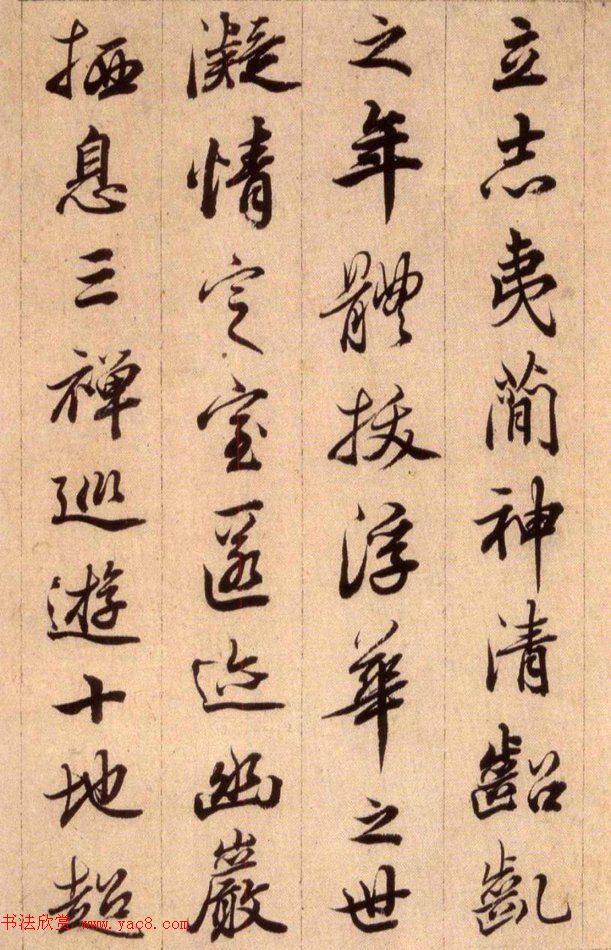 立志夷簡神清齠齓
之年體拔浮華之世
凝情定室匿迹幽巖
栖息三禪巡遊十地超
书法欣赏 www.yac8.com